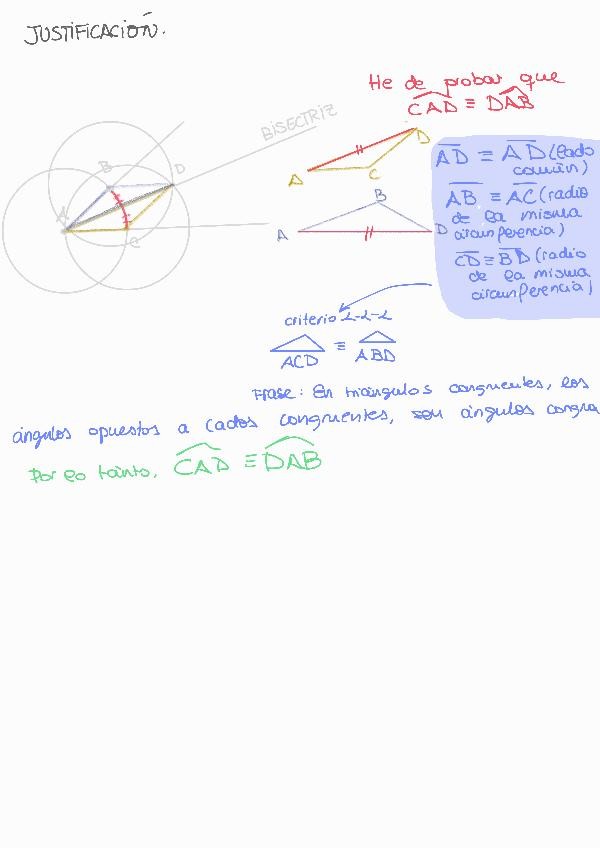 JUSTIFICACIÓN.
He de probar que
CAD ≡ DAB
BISECTRIZ
B
D
A
C
D
A
C
B
A
D
AD ≡ AD (lado
común)
AB ≡ AC (radio
de la misma
circunferencia)
CD ≡ BD (radio
de la misma
circunferencia)
criterio L-L-L
ACD ≡ ABD
Frase: En triángulos congruentes, los
ángulos opuestos a lados congruentes, son ángulos congru
Por lo tanto, CAD ≡ DAB